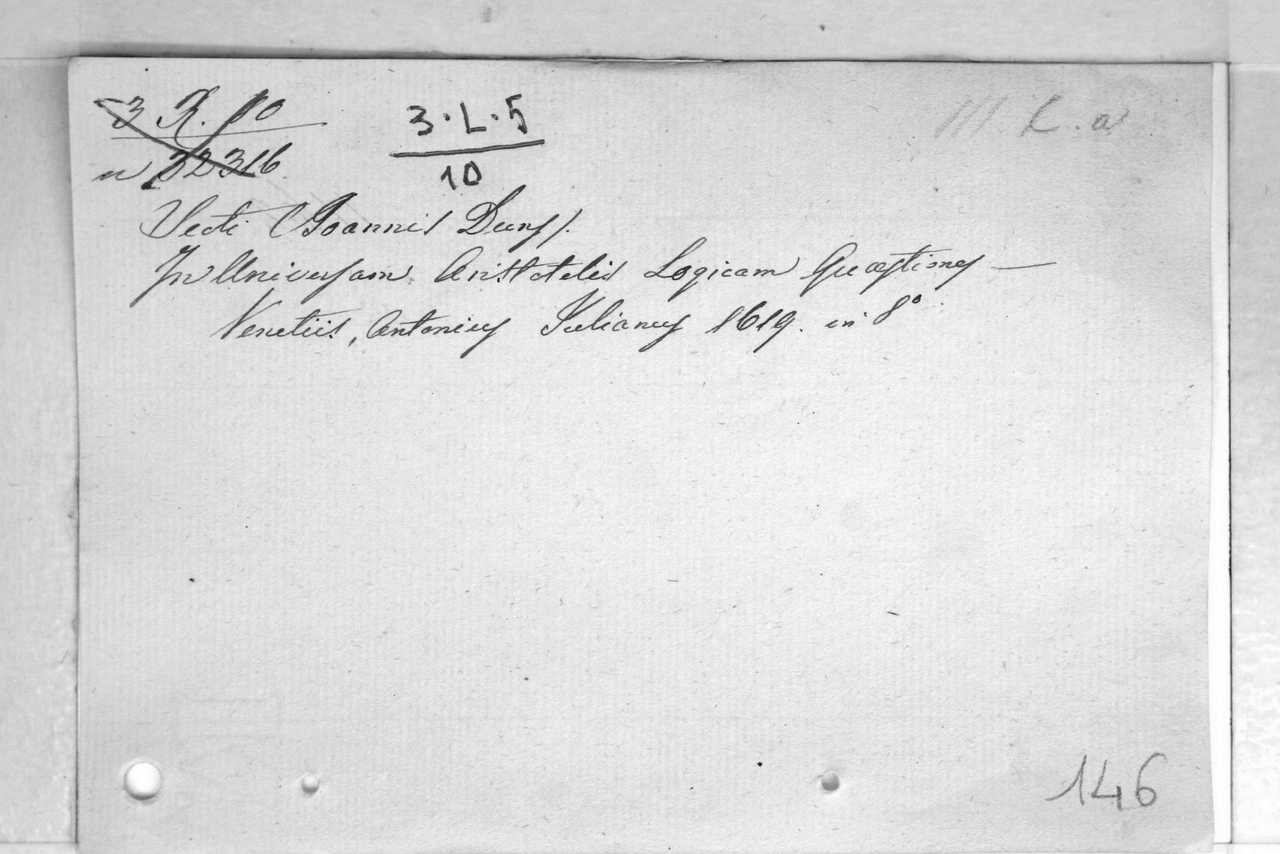 3 R. 10
n 32316
3·L·5
10
III L. a
Scoti (Joannis Duns).
In Universam Aristotelis Logicam Quæstiones —
Venetiis, Antonius Julianus 1619. in 8º
146